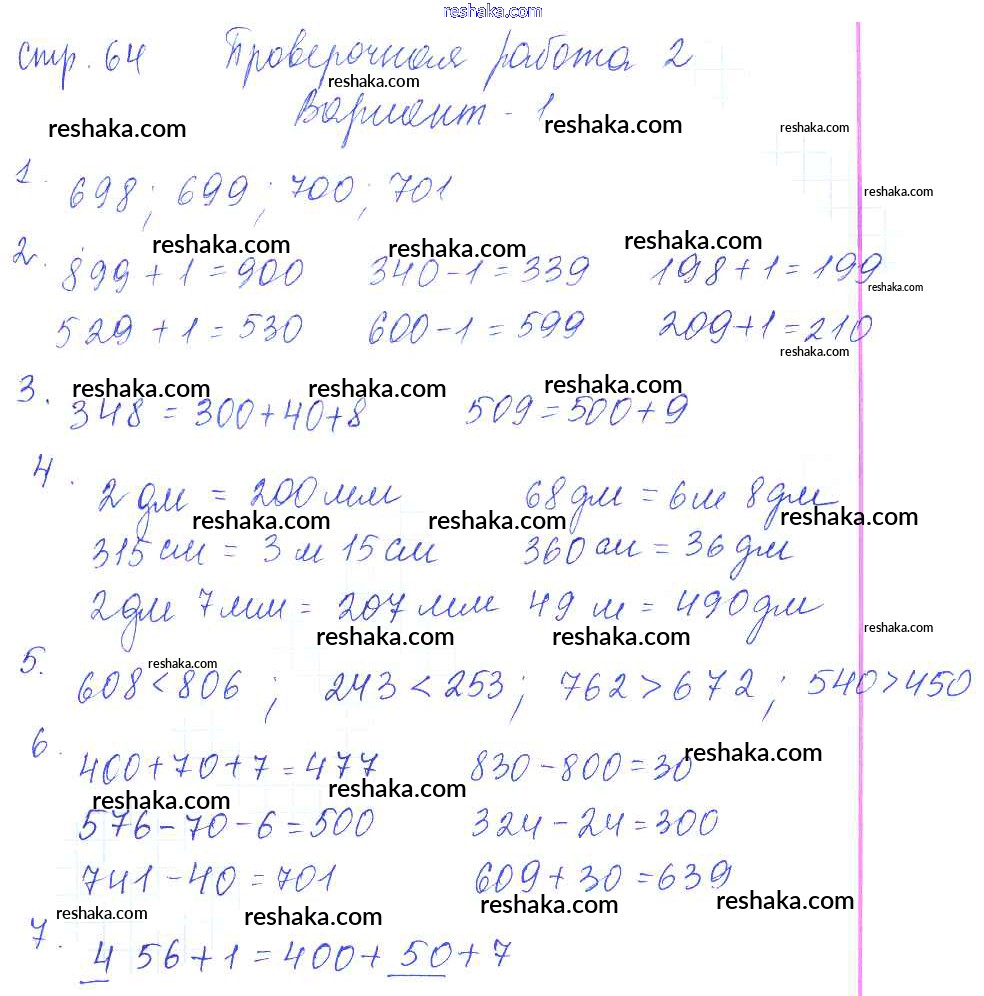 reshaka.com
стр. 64 Проверочная работа 2
reshaka.com
Вариант - 1
reshaka.com reshaka.com reshaka.com
1. 698; 699; 700; 701
reshaka.com
reshaka.com reshaka.com reshaka.com
2. 899 + 1 = 900 340 - 1 = 339 198 + 1 = 199
reshaka.com
529 + 1 = 530 600 - 1 = 599 209 + 1 = 210
reshaka.com
reshaka.com reshaka.com reshaka.com
3. 348 = 300 + 40 + 8 509 = 500 + 9
4. 2 дм = 200 мм 68 дм = 6 м 8 дм
reshaka.com reshaka.com reshaka.com
315 см = 3 м 15 см 360 см = 36 дм
2 дм 7 мм = 207 мм 49 м = 490 дм
reshaka.com reshaka.com reshaka.com
reshaka.com
5. 608 < 806; 243 < 253; 762 > 672; 540 > 450
6. 400 + 70 + 7 = 477 830 - 800 = 30
reshaka.com
reshaka.com reshaka.com
576 - 70 - 6 = 500 324 - 24 = 300
741 - 40 = 701 609 + 30 = 639
reshaka.com reshaka.com reshaka.com reshaka.com
7. 4 56 + 1 = 400 + 50 + 7